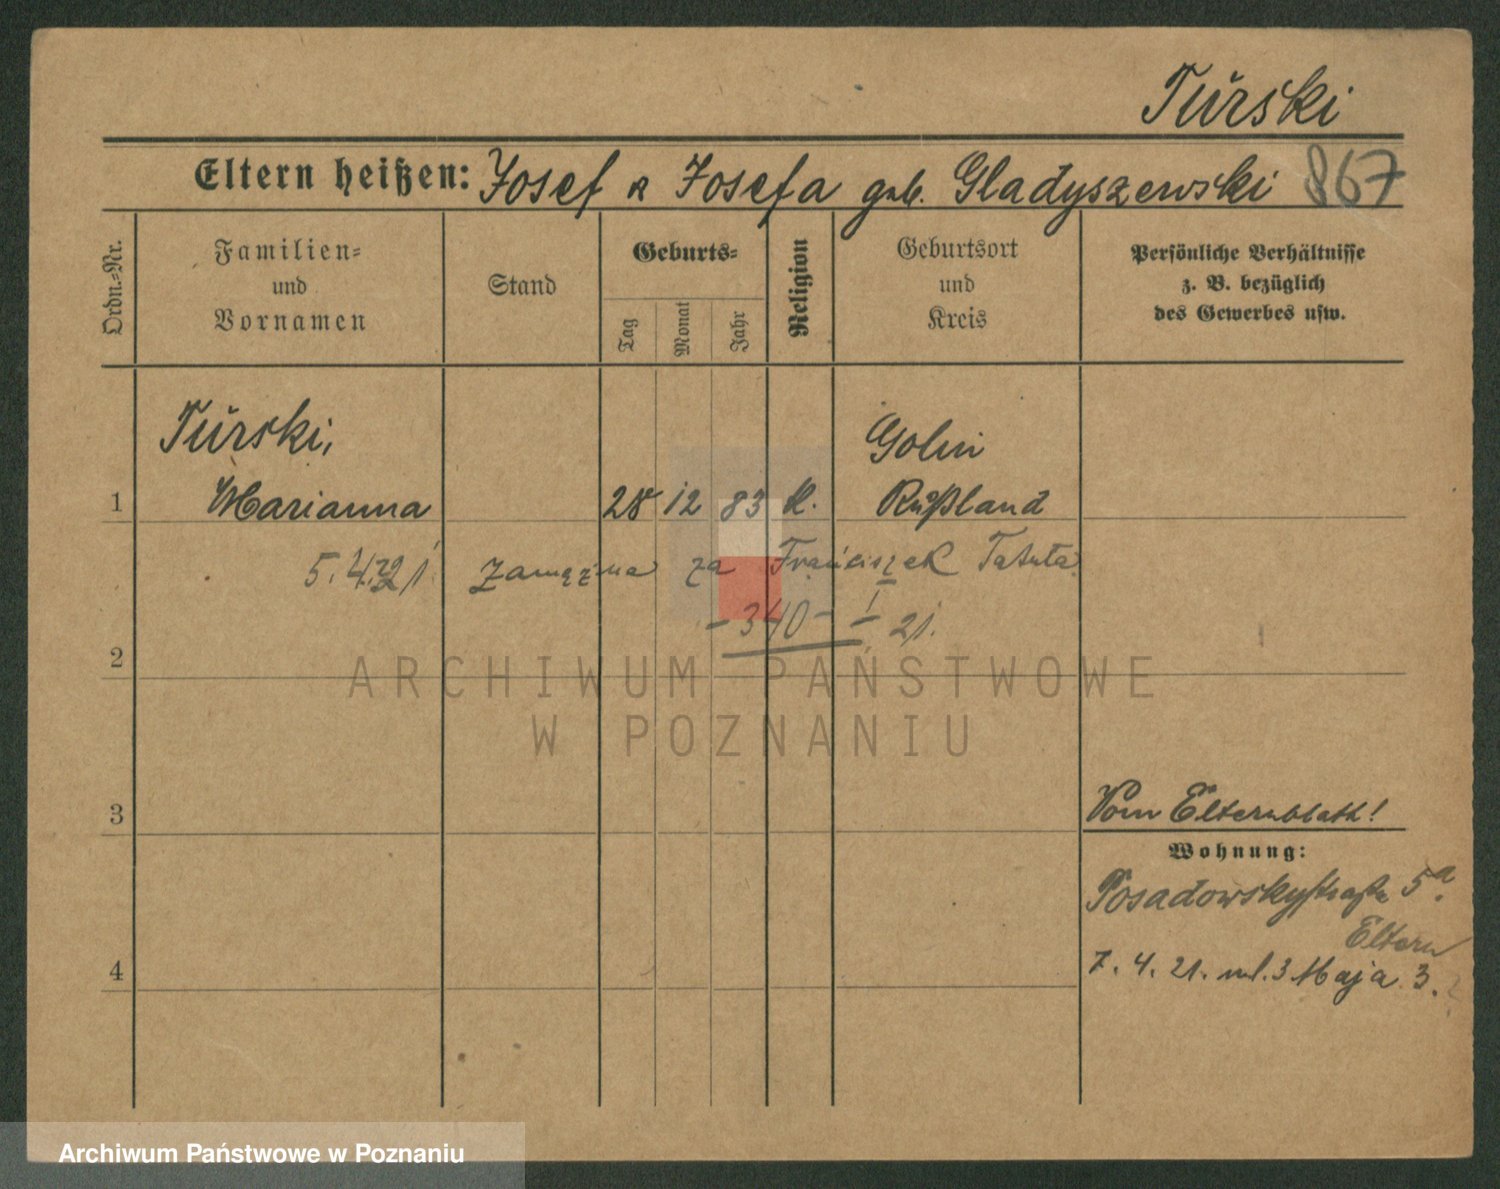 Turski
Eltern heißen: Josef u Josefa geb. Gladyszewski 867
Ordn.-Nr.
Familien-
und
Vornamen
Stand
Geburts-
Tag
Monat
Jahr
Religion
Geburtsort
und
Kreis
Persönliche Verhältnisse
z. B. bezüglich
des Gewerbes usw.
Turski,
Golin
1 Marianna 28 12 83 K. Rußland
5.4.21 zamężna za Franciszek
- 340 - I 21.
2
ARCHIWUM PAŃSTWOWE
W POZNANIU
3
Vom Elternblatt!
Wohnung:
Posadowskystraße 5a.
Eltern
4
7. 4. 21. ul. 3 Maja 3.
Archiwum Państwowe w Poznaniu